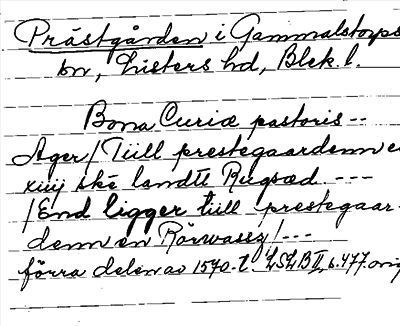 Prästgården i Gammalstorps
sn, Listers hd, Blek. l.
Bona Curiæ pastoris --
Ager / Tiill prestegaardenn e
xiiij ske landtt Rugsæd. ---
/ End ligger tiill prestegaar-
denn en Rörwasez /---
förra delen av 1570-t. LSLB II, s. 477. orig